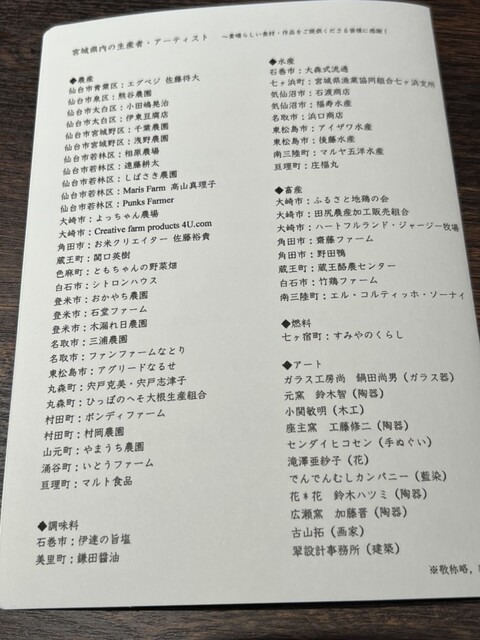 宮城県内の生産者・アーティスト　～素晴らしい食材・作品をご提供くださる皆様に感謝！
◆農産
仙台市青葉区：エグベジ 佐藤将大
仙台市泉区：熊谷農園
仙台市太白区：小田嶋晃治
仙台市太白区：伊東豆腐店
仙台市宮城野区：千葉農園
仙台市宮城野区：浅野農園
仙台市若林区：相原農場
仙台市若林区：遠藤耕太
仙台市若林区：しばさき農園
仙台市若林区：Maris Farm 高山真理子
仙台市若林区：Punks Farmer
大崎市：よっちゃん農場
大崎市：Creative farm products 4U.com
角田市：お米クリエイター 佐藤裕貴
蔵王町：関口英樹
色麻町：ともちゃんの野菜畑
白石市：シトロンハウス
登米市：おかやち農園
登米市：石堂ファーム
登米市：木漏れ日農園
名取市：三浦農園
名取市：ファンファームなとり
東松島市：アグリードなるせ
丸森町：宍戸克美・宍戸志津子
丸森町：ひっぽのへそ大根生産組合
村田町：ボンディファーム
村田町：村岡農園
山元町：やまうち農園
涌谷町：いとうファーム
亘理町：マルト食品
◆調味料
石巻市：伊達の旨塩
美里町：鎌田醤油
◆水産
石巻市：大森式流通
七ヶ浜町：宮城県漁業協同組合七ヶ浜支所
気仙沼市：石渡商店
気仙沼市：福寿水産
名取市：浜口商店
東松島市：アイザワ水産
東松島市：後藤水産
南三陸町：マルヤ五洋水産
亘理町：庄福丸
◆畜産
大崎市：ふるさと地鶏の会
大崎市：田尻農産加工販売組合
大崎市：ハートフルランド・ジャージー牧場
角田市：齋藤ファーム
角田市：野田鴨
蔵王町：蔵王酪農センター
白石市：竹鶏ファーム
南三陸町：エル・コルティッホ・ソーナイ
◆燃料
七ヶ宿町：すみやのくらし
◆アート
ガラス工房尚　鍋田尚男（ガラス器）
元窯　鈴木智（陶器）
小関敏明（木工）
座主窯　工藤修二（陶器）
センダイヒコセン（手ぬぐい）
滝澤亜紗子（花）
でんでんむしカンパニー（藍染）
花＊花　鈴木ハツミ（陶器）
広瀬窯　加藤晋（陶器）
古山拓（画家）
翠設計事務所（建築）
※敬称略，